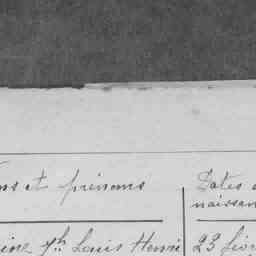 ms et prénoms
Dates d
naissan
ine Jh Louis Henri
23 févr